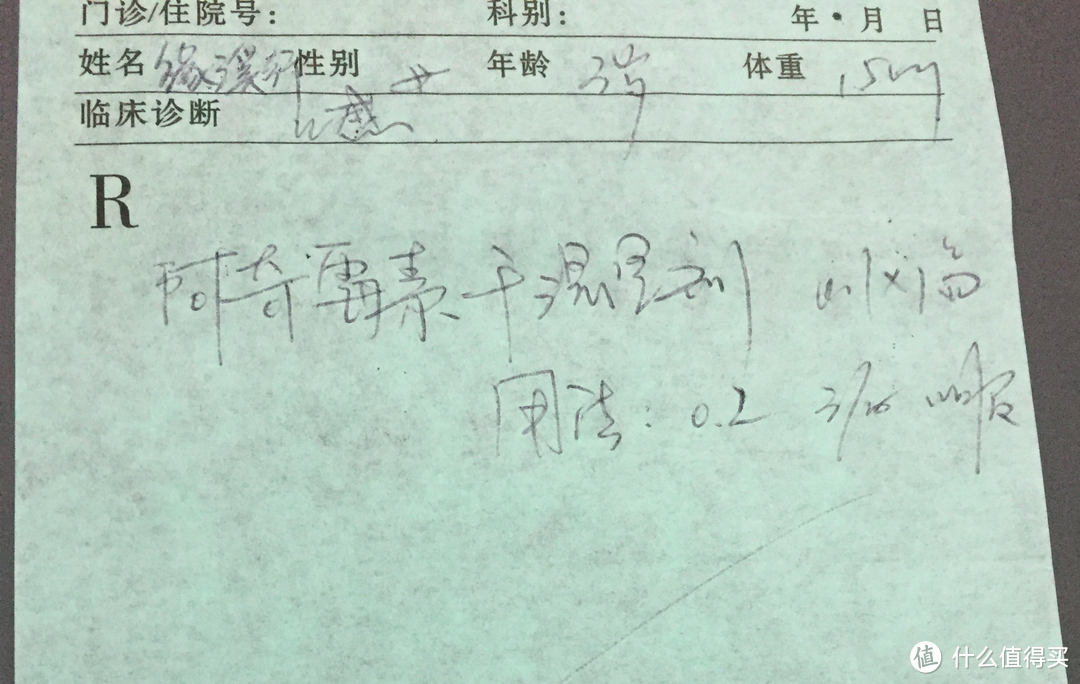 门诊/住院号: 科别: 年 月 日
姓名 性别 年龄 3岁 体重 15kg
临床诊断 上感
R
阿奇霉素干混悬剂
用法: 0.2 3/日
值 什么值得买